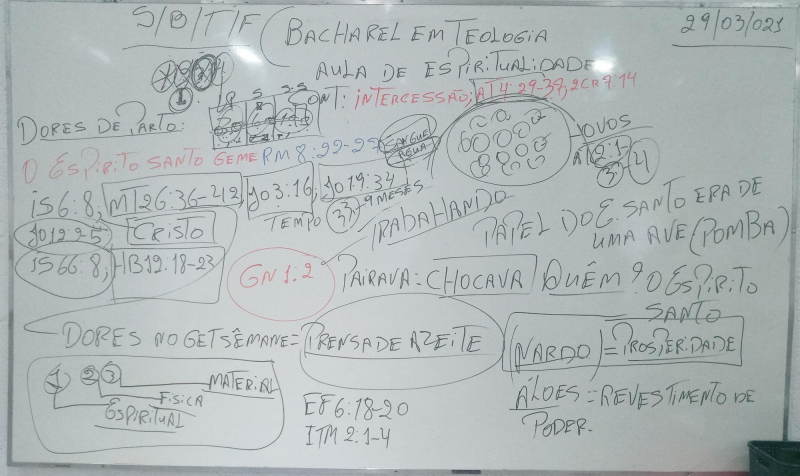 S/B/T/F (BACHAREL EM TEOLOGIA
29/03/021
AULA DE ESPIRITUALIDADE
CONT: INTERCESSÃO; AT 4:29-37, 2CR 7.14
DORES DE PARTO:
O ESPIRITO SANTO GEME RM 8:22-27
SANGUE
ÁGUA
OVOS
AT 2:1-4
3
IS 6:8, MT 26:36-42, JO 3:16, JO 19:34
TEMPO 3 9 MESES
JO 12:25 CRISTO
TRABAHANDO
PAPEL DO E. SANTO ERA DE
UMA AVE (POMBA)
IS 66:8, HB 12:18-23
GN 1:2 PAIRAVA = CHOCAVA QUÊM? O ESPIRITO
SANTO
DORES NO GETSÊMANE = PRENSA DE AZEITE
(NARDO) = PROSPERIDADE
1 2 3 MATERIAL
FISICA
ESPIRITUAL
ÁLOES = REVESTIMENTO DE
PODER.
EF 6:18-20
ITM 2:1-4